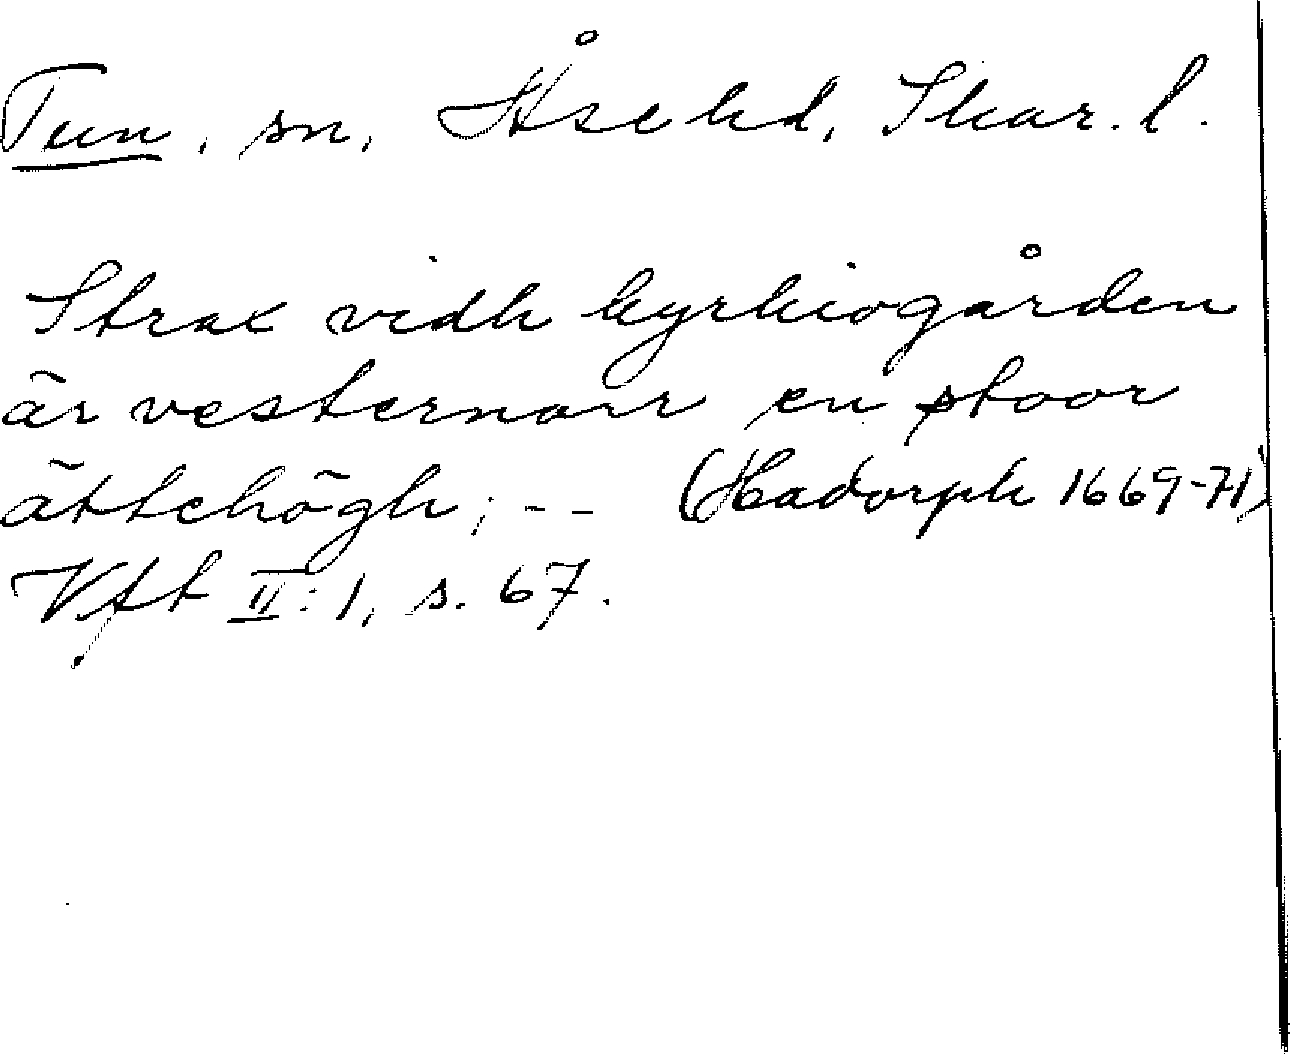 Tun, sn, Åse hd, Skar. l.
Strax vidh kyrkiogården
är vesternorr en stoor
ättehögh; -- (Hadorph 1669-71)
Vft II:1, s. 67.